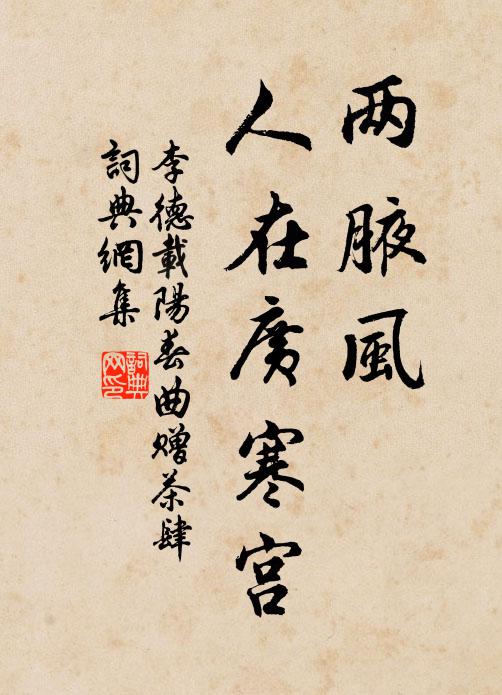 两腋風
人在廣寒宮
李德載陽春曲贈茶肆
詞典網集
詞典
网印